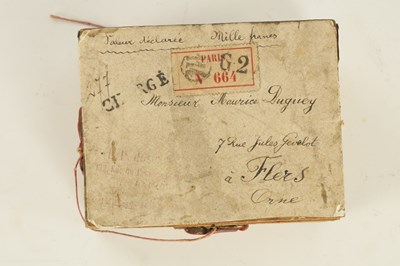 Valeur déclarée Mille francs
CHARGÉ
PARIS 62
N° 664
Monsieur Maurice Duguey
7 Rue Jules Gévelot
à Flers
Orne